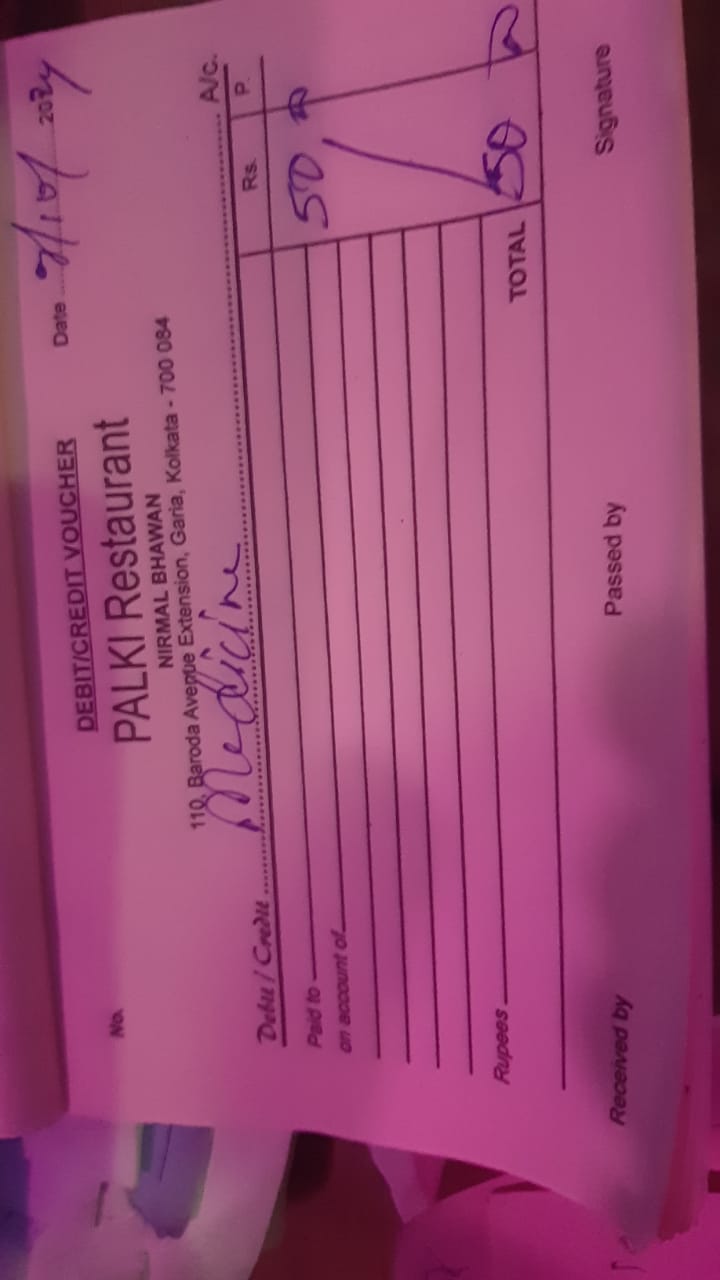 DEBIT/CREDIT VOUCHER
No. Date 2024
PALKI Restaurant
NIRMAL BHAWAN
110, Baroda Avenue Extension, Garia, Kolkata - 700 084
Debit / Credit Medicine A/c.
Rs. P.
Paid to 50
on account of
Rupees TOTAL 50
Received by Passed by Signature